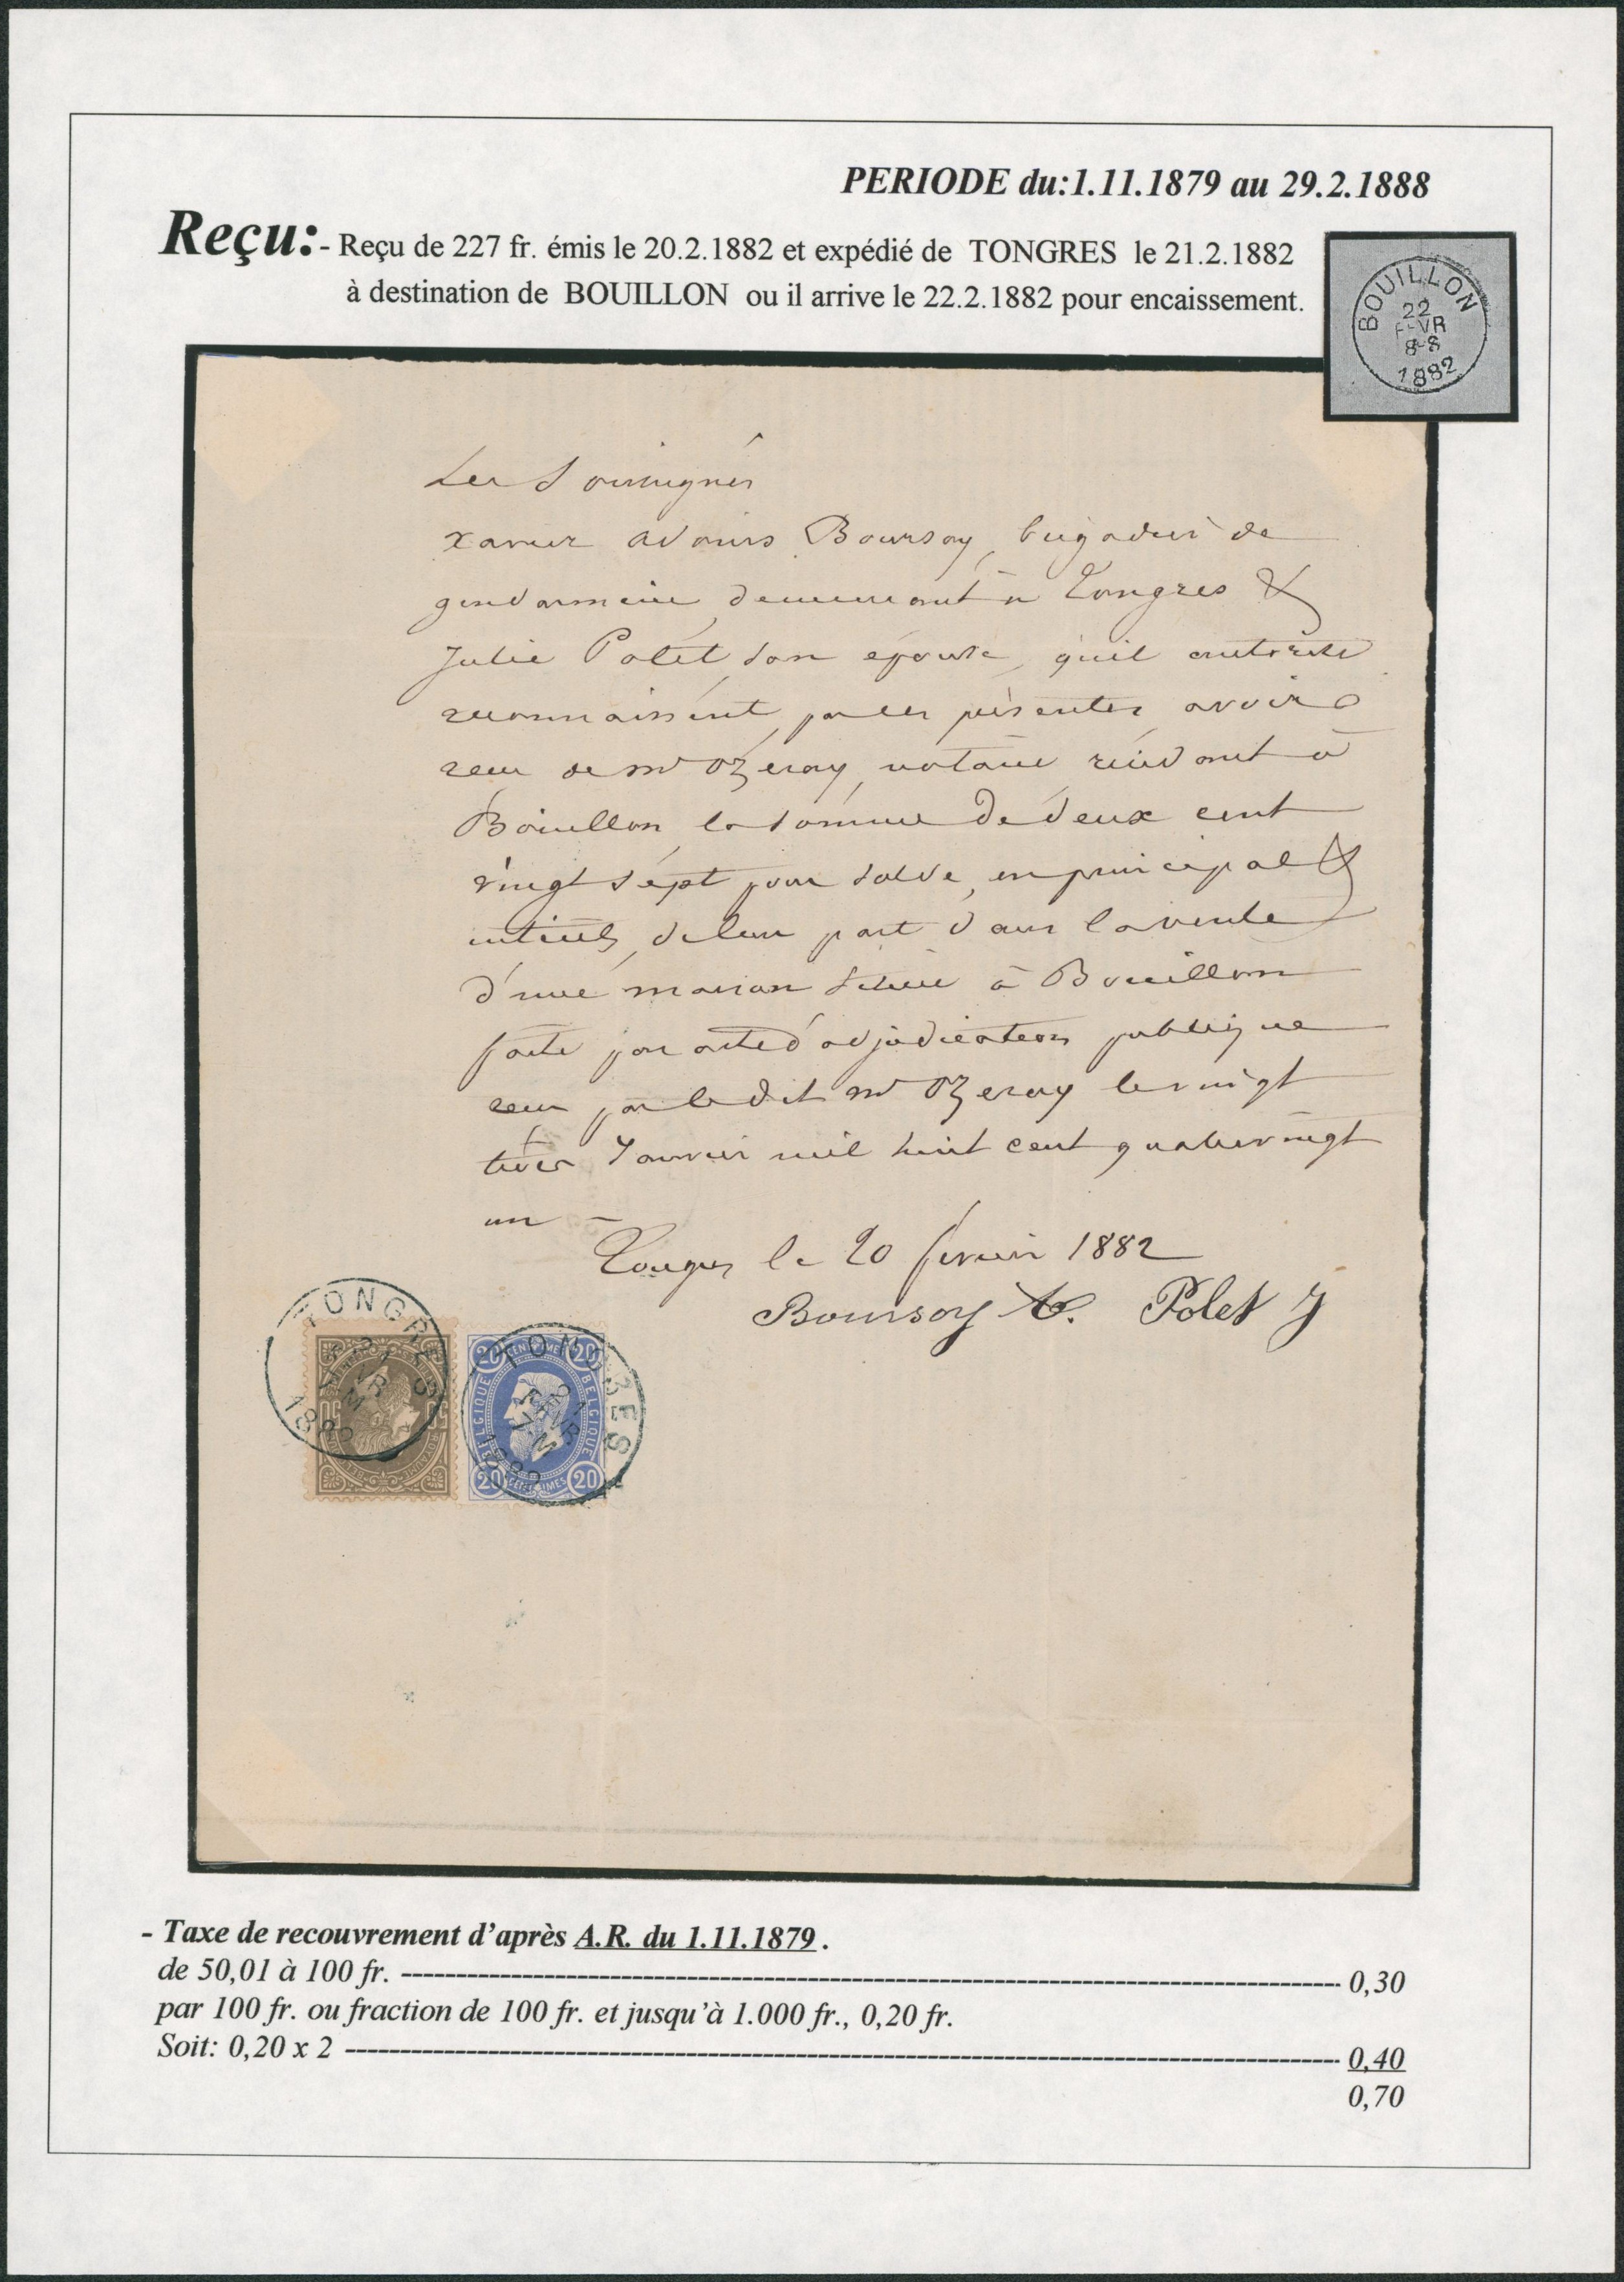 PERIODE du:1.11.1879 au 29.2.1888
Reçu:- Reçu de 227 fr. émis le 20.2.1882 et expédié de TONGRES le 21.2.1882
à destination de BOUILLON ou il arrive le 22.2.1882 pour encaissement.
BOUILLON
22
FEVR
8-S
1882
Les Soussignés
Xavier Boursoy, brigadier de
gendarmerie, demeurant à Tongres &
Julie Polet, son épouse, qu'il autorise
reconnaissent par les présentes avoir
reçu de Mr Ozeray, notaire résidant à
Bouillon la somme de deux cent
vingt sept pour solde, en principal &
intérêts, de leur part dans la vente
d'une maison située à Bouillon
faite par acte d'adjudication publique
reçu par le dit Mr Ozeray le vingt
trois Janvier mil huit cent quatre vingt
un -
Tongres le 20 février 1882
Boursoy Polet J
TONGRES
21
FEVR
M
1882
TONGRES
21
FEVR
M
1882
50
ROYAUME
20 CENTIMES 20
BELGIQUE BELGIQUE
20 CENTIMES 20
- Taxe de recouvrement d'après A.R. du 1.11.1879.
de 50,01 à 100 fr. 0,30
par 100 fr. ou fraction de 100 fr. et jusqu'à 1.000 fr., 0,20 fr.
Soit: 0,20 x 2 0,40
0,70